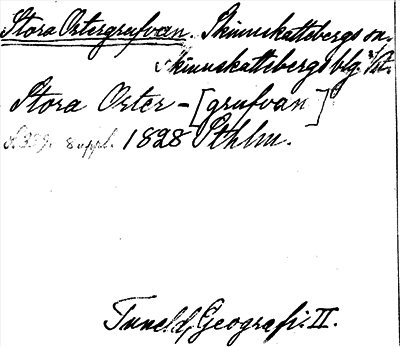 Stora Ortergrufvan. Skinnskattebergs sn.
Skinnskattebergs blg.
Stora Orter - [grufvan]
s. 359. suppl. 1828 Sthlm.
Tuneld, Geografi. II.